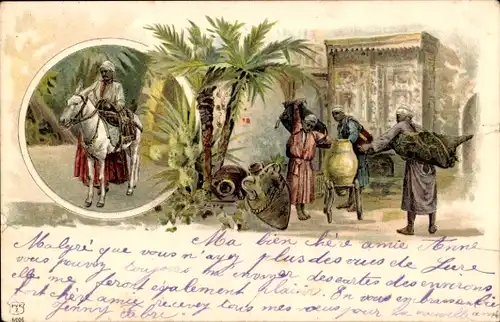 Ma bien chère amie Anne
Malgré que vous n'ayez plus des vues de Lure
vous pouvez toujours m'envoyer des cartes des environs
elle me feront également plaisir. En vous embrassant bien
fort chère amie recevez tous mes vœux pour la nouvelle année
Jenny Fabre